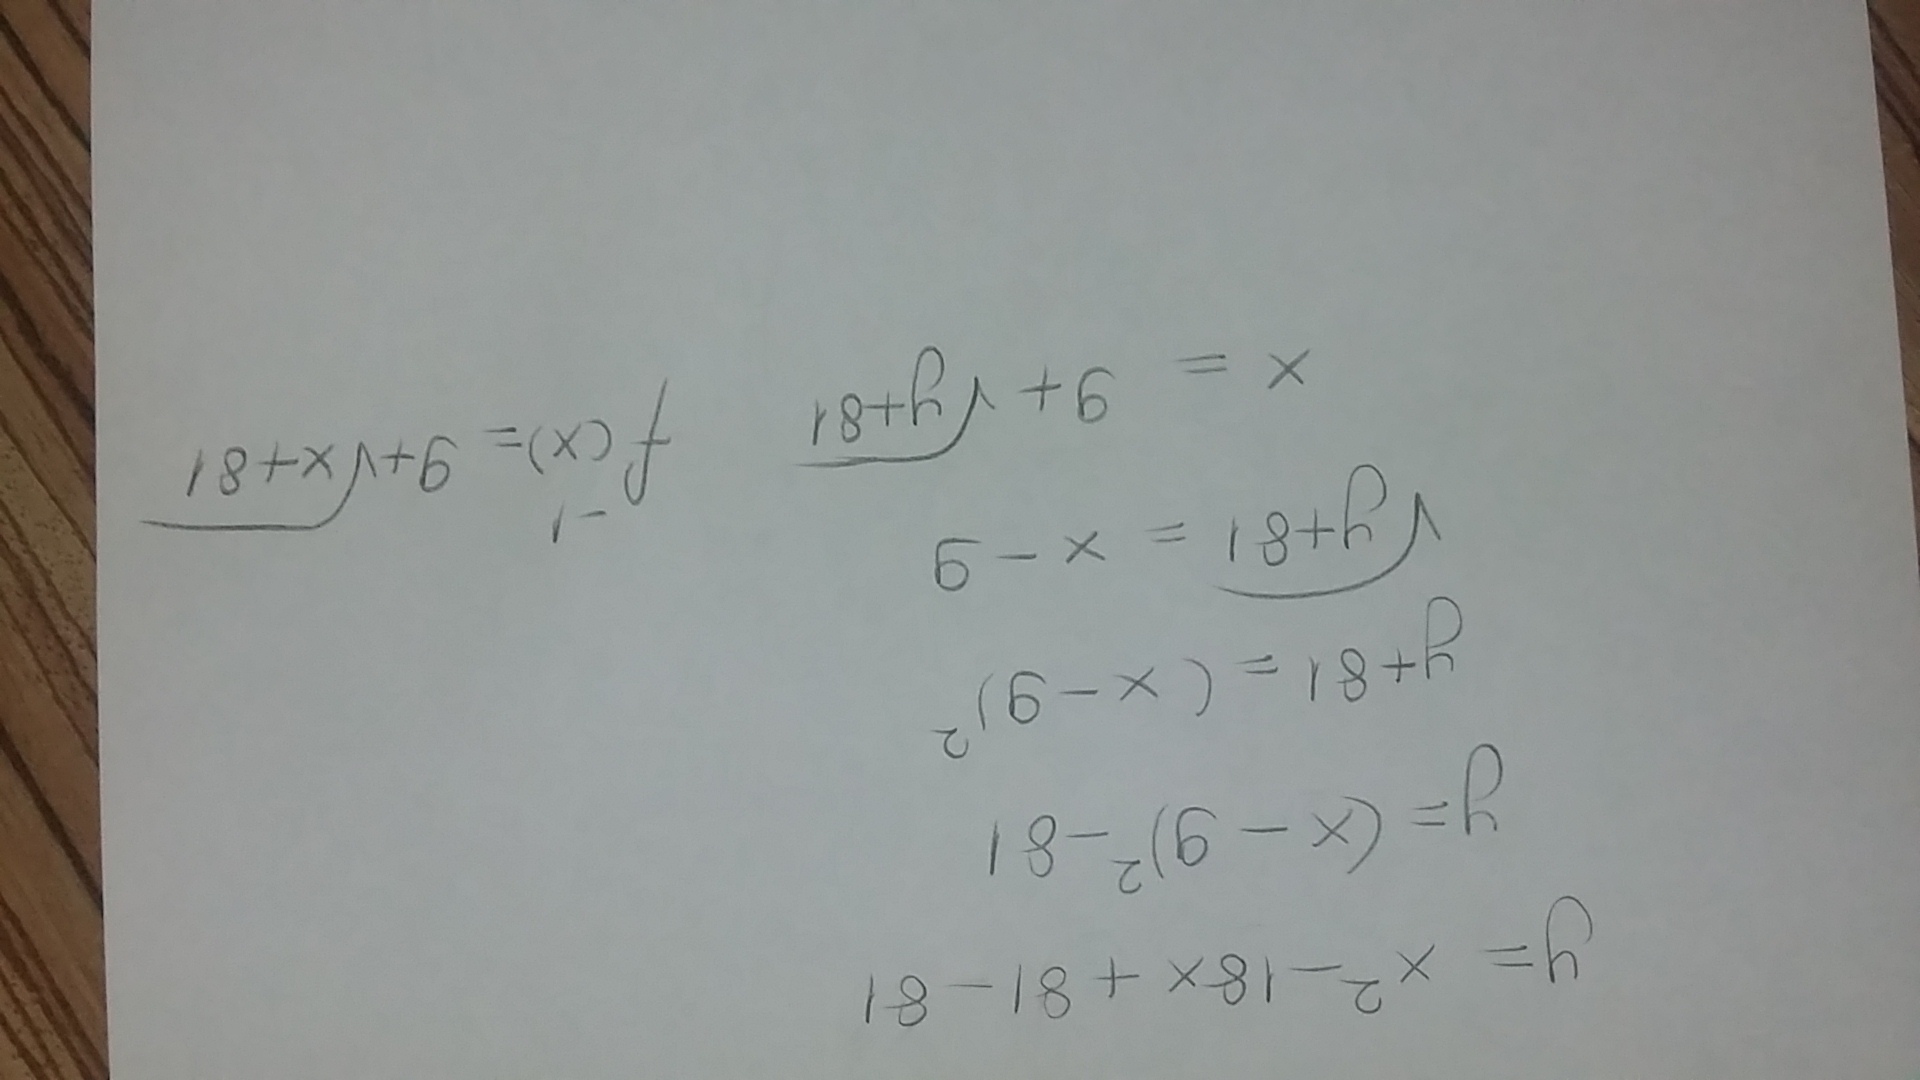 y= x²-18x + 81-81
y= (x - 9)² -81
y+81 = (x-9)²
√y+81 = x-9
x = 9+√y+81
f⁻¹(x)= 9+√x+81